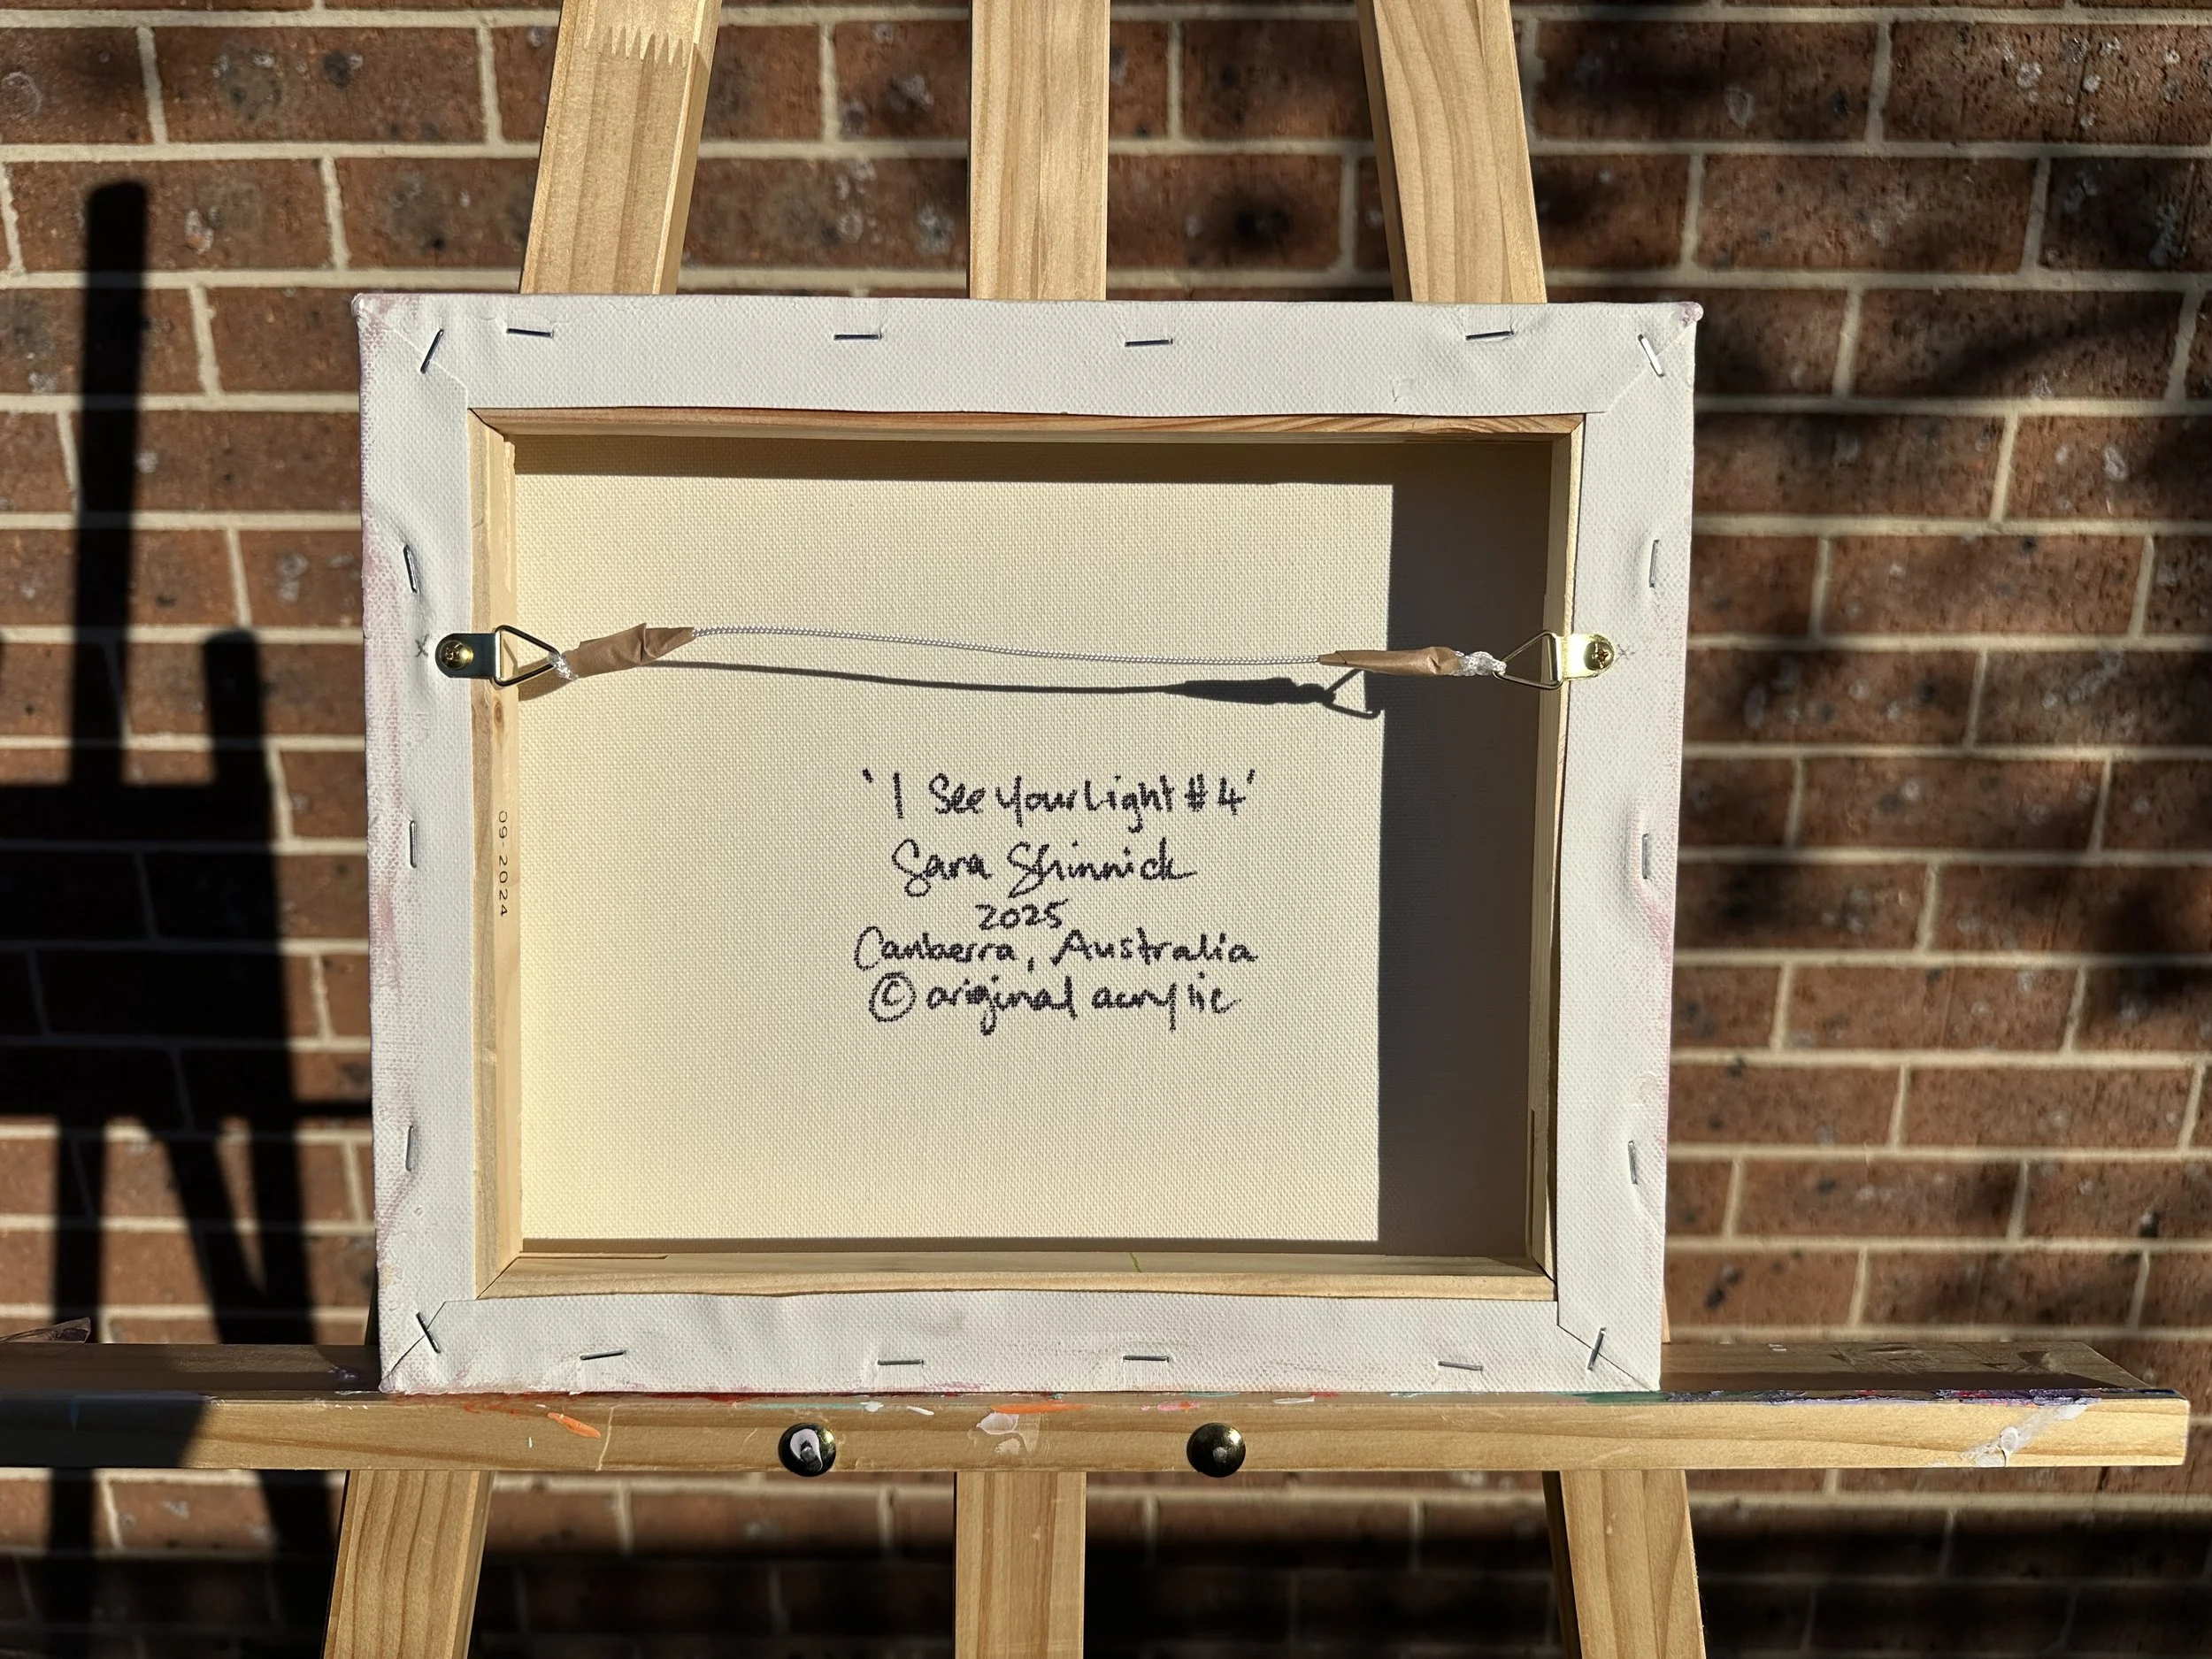 'I See Your Light #4'
Sara Shinnick
2025
Canberra, Australia
© original acrylic
09-2024
x
x